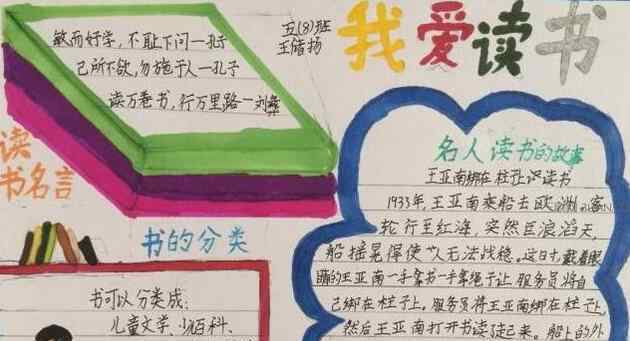 敏而好学，不耻下问一孔子
己所不欲，勿施于人一孔子
读万卷书，行万里路一刘彝
五(8)班
王储扬
我爱读书
读
书名言
书的分类
书可以分类成：
儿童文学、少百科、
名人读书的故事
王亚南绑在柱子上读书
1933年，王亚南乘船去欧洲
轮行至红海，突然巨浪滔天，
船摇晃得使人无法战稳。这日才，戴着眼
睛的王亚南一手拿书一手拿绳子让服务员将自
己绑在柱子上。服务员将王亚南绑在柱子上
然后王亚南打开书读了起来。船上的外